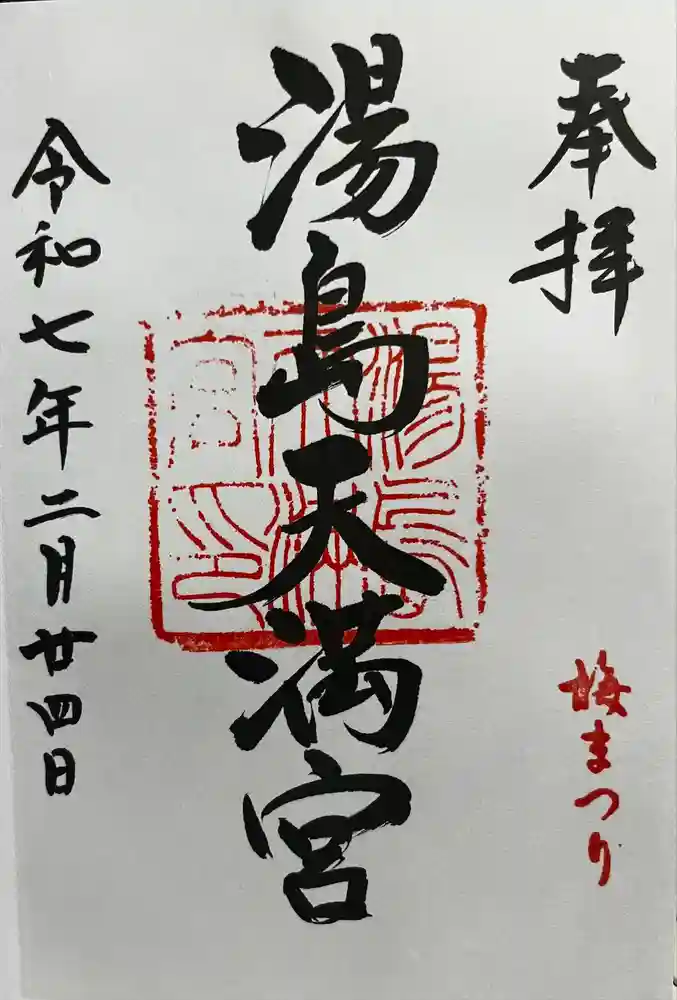 奉拝
梅まつり
湯島天満宮
令和七年二月廿四日